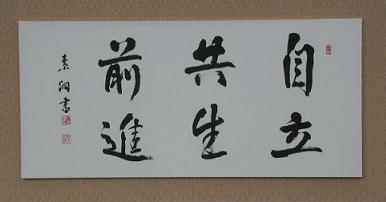 自立
共生
前進